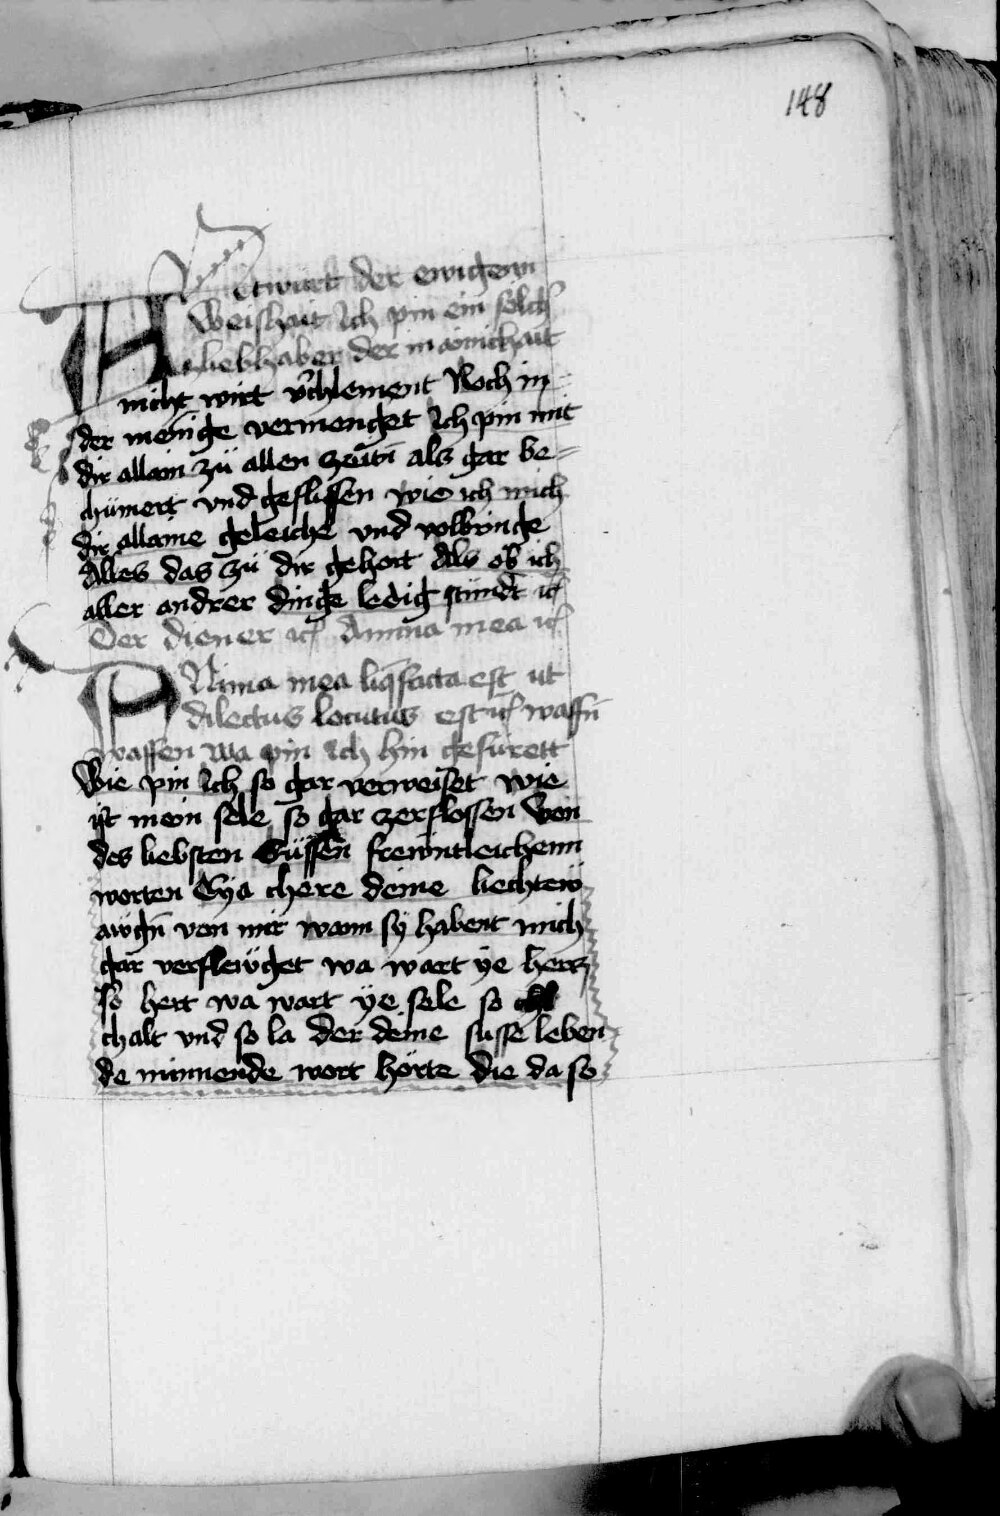 148
Antwurt der ewigenn
Weishait Ich pin ein sölch
liebhaber der in ainichait
nicht wirt v̈chlement Noch in=
der menige vermenget Ich pin mit
dir allain zü allen zeitn̄ als gar be=
chümert vnd geflissen wie ich mich
dir allaine geleiche vnd volbringe
Alles das zü dir gehort Als ob ich
aller andrer dinge ledig stündt ꝛc̄
Der diener ꝛc̄ Anima mea ꝛc̄
ANima mea liq̄facta est ut
dilectus locutus est ꝛc̄ waffn̄
waffen wa pin Ich hin gefürett
Wie pin Ich so gar verweiset wie
ist mein sele so gar zerflossen Von
des liebsten Süssen frewntleichenn
worten Eya chere deine liechtew
awgn̄ von mir wann sy habent mich
gar verflewget wa wart ye hercz
so hert wa wart ye sele so
chalt vnd so la der deine susse leben
de minnende wort hörte die da so